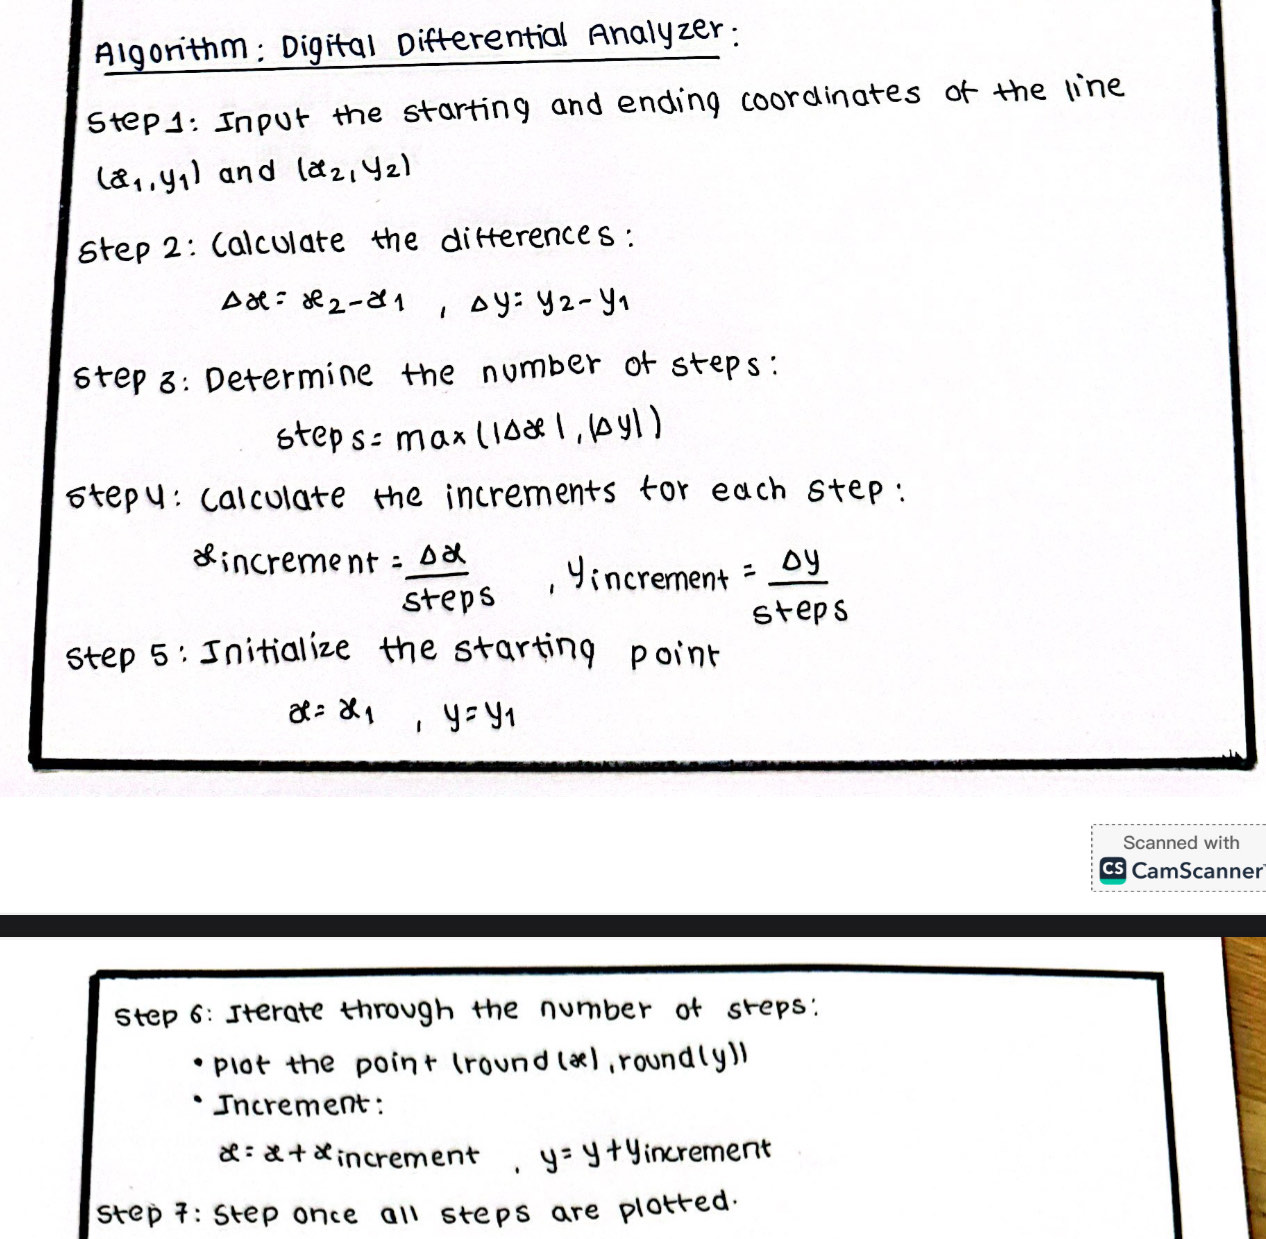 Algorithm: Digital Differential Analyzer:
Step 1: Input the starting and ending coordinates of the line
(x1,y1) and (x2,y2)
Step 2: Calculate the differences:
Δx= x2-x1 , Δy= y2-y1
Step 3: Determine the number of steps:
steps= max(|Δx|,|Δy|)
Step 4: Calculate the increments for each step:
xincrement = Δx/steps , yincrement = Δy/steps
Step 5: Initialize the starting point
x= x1 , y=y1
Scanned with
CS CamScanner
Step 6: Iterate through the number of steps:
• Plot the point (round(x),round(y))
• Increment:
x= x+xincrement , y= y+yincrement
Step 7: Step once all steps are plotted.